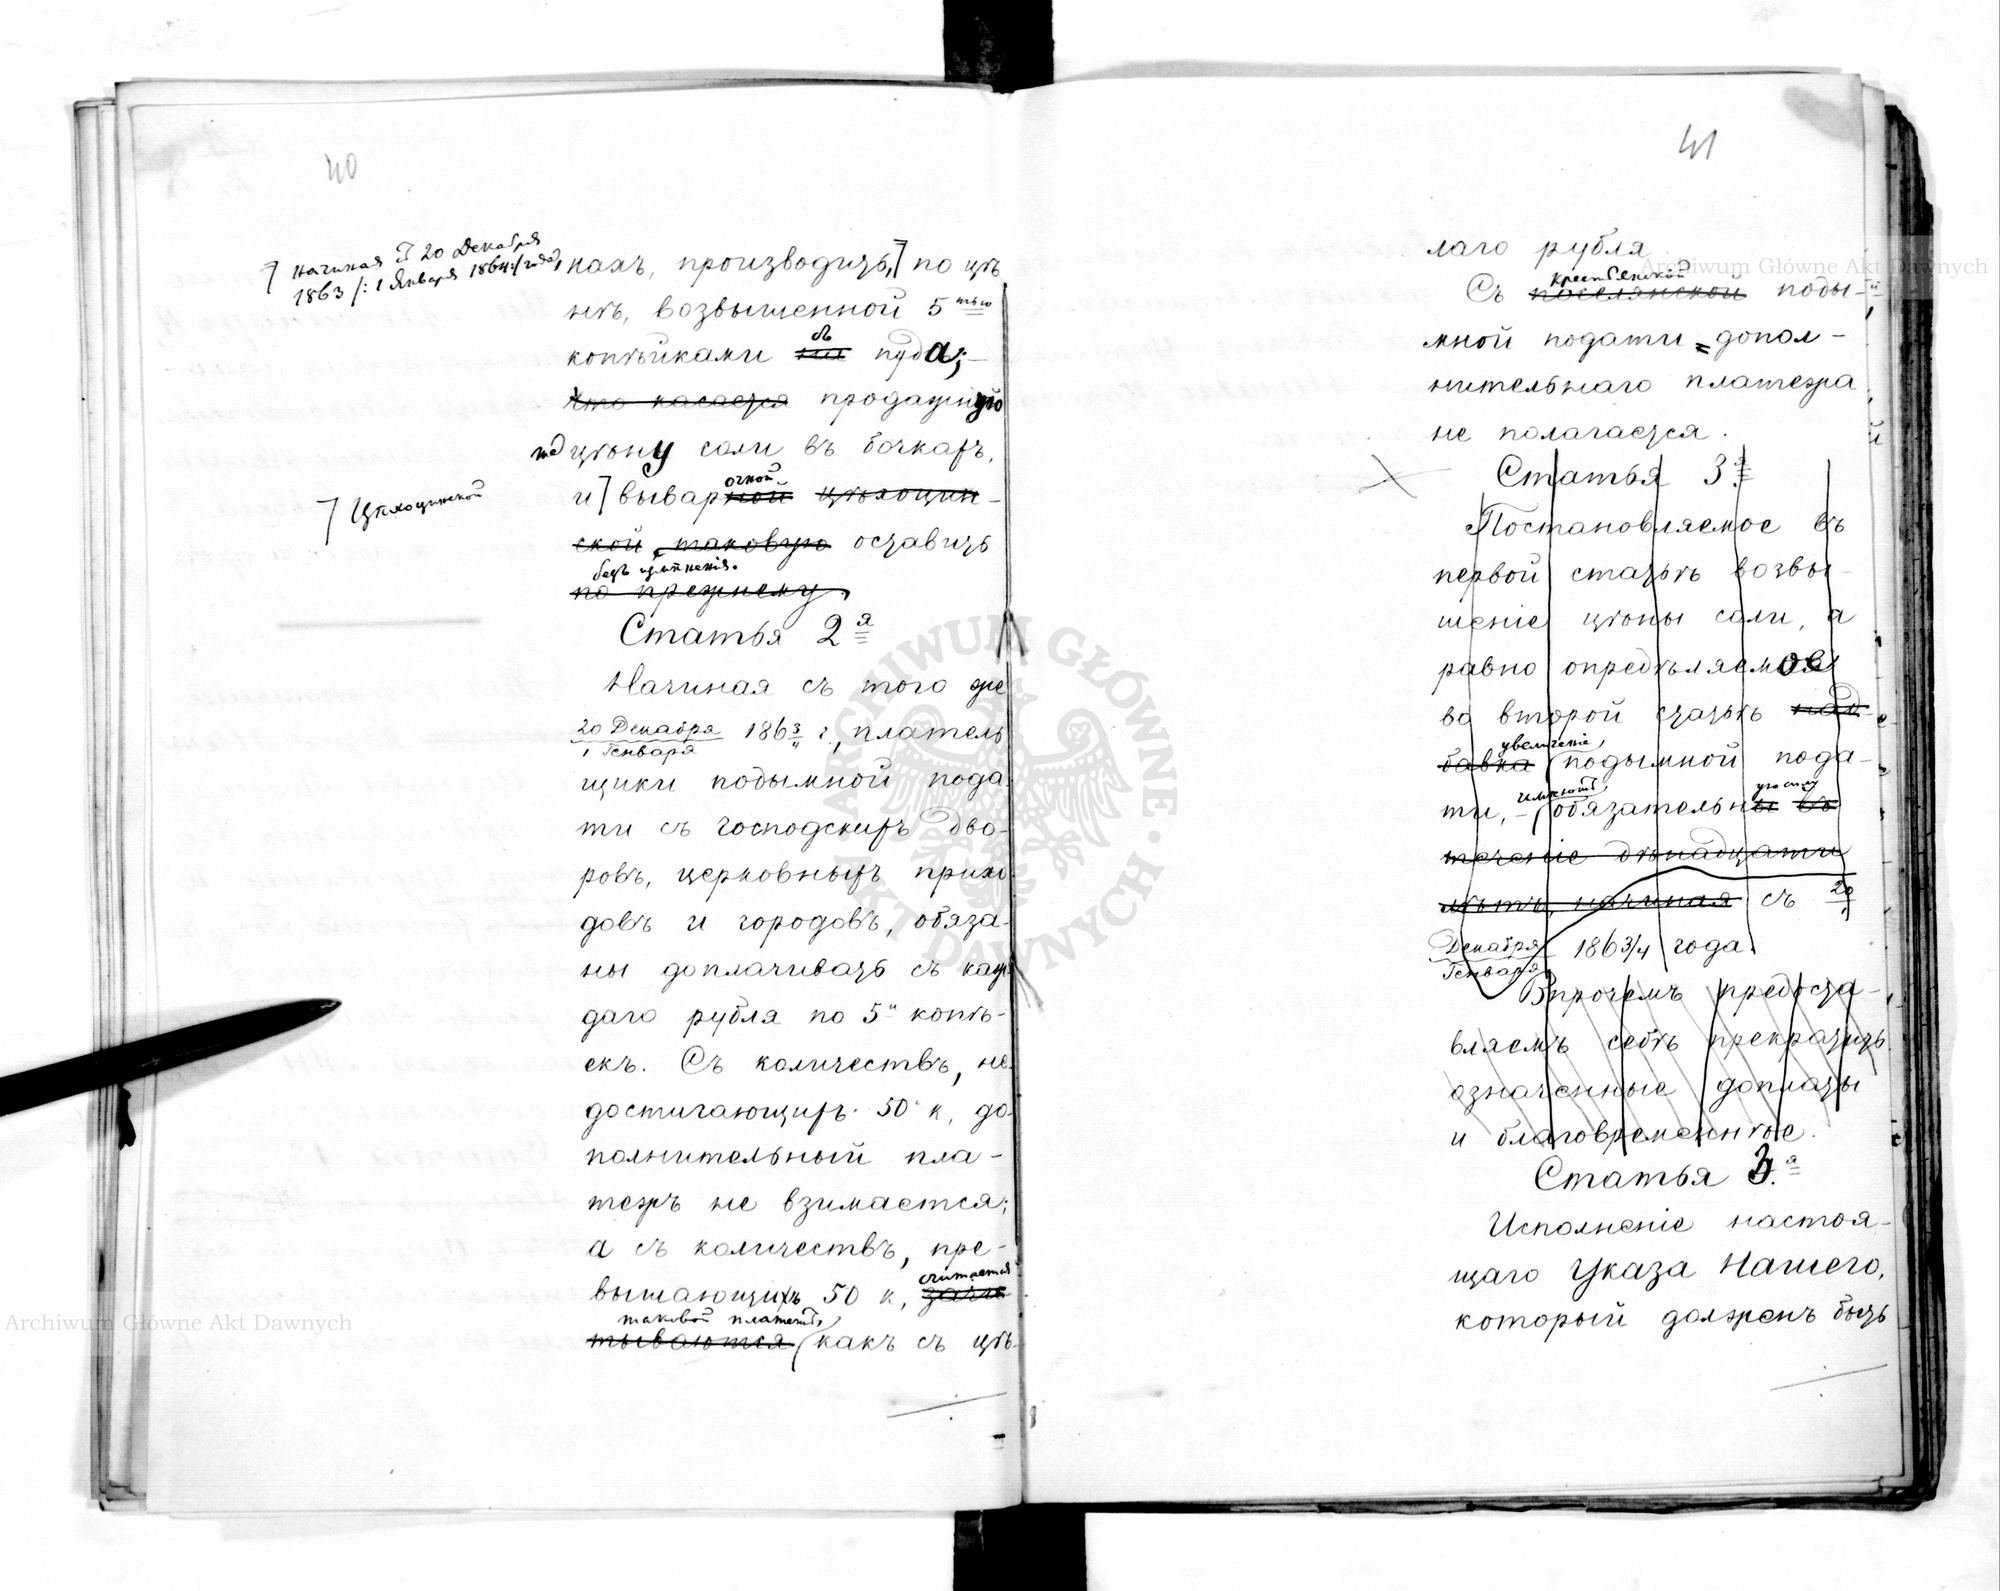 40
начиная съ 20 Декабря
1863 /: 1 Января 1864:/ года,
нахъ, производить, по цѣ
нѣ, возвышенной 5тью
копѣйками съ на пуда;
Что касается продажную
цѣну соли въ бочкахъ,
Цѣхоцинской
и вывар очной ной цѣхоцин-
ской, таковую оставить
безъ измѣненія.
по прежнему.
Статья 2я
Начиная съ того же
20 Декабря / 1 Генваря 1863/4 г., платель
щики подымной пода
ти съ господскихъ дво-
ровъ, церковныхъ прихо
довъ и городовъ, обяза-
ны доплачивать съ каж
даго рубля по 5и копѣ-
екъ. Съ количествъ, не
достигающихъ 50 к, до
полнительный пла-
тежъ не взимается;
а съ количествъ, пре-
вышающихъ 50 к, считается засчи
таковой платежъ,
тываются какъ съ цѣ-
41
лаго рубля
крестьянской
Съ поселянской поды-
мной подати допол-
нительнаго платежа
не полагается.
Статья 3я
Постановляемое въ
первой статьѣ возвы-
шеніе цѣны соли, а
равно опредѣляемое
во второй статьѣ над-
увеличеніе
бавка подымной пода-
имѣютъ силу
ти, - обязательны въ
теченіе двѣнадцати
лѣтъ, начиная съ 20/1
Декабря / Генваря 1863/4 года.
Впрочемъ предоста-
вляемъ себѣ прекратить
означенные доплаты
и благовременнѣе.
Статья 3.я
Исполненіе настоя-
щаго Указа Нашего,
который долженъ быть
Archiwum Główne Akt Dawnych
Archiwum Główne Akt Dawnych
ARCHIWUM GŁÓWNE AKT DAWNYCH